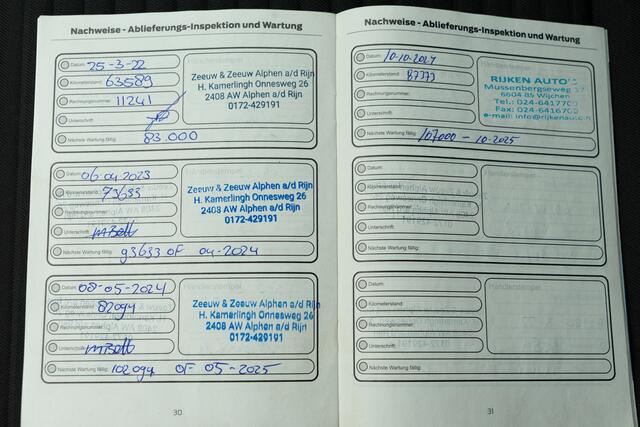 Nachweise - Ablieferungs-Inspektion und Wartung
Datum: 25-3-22
Kilometerstand: 63589
Rechnungsnummer: 11241
Unterschrift:
Nächste Wartung fällig: 83.000
Zeeuw & Zeeuw Alphen a/d Rijn
H. Kamerlingh Onnesweg 26
2408 AW Alphen a/d Rijn
0172-429191
Datum: 06 04 2023
Kilometerstand: 73633
Rechnungsnummer:
Unterschrift:
Nächste Wartung fällig: 93633 OF 04-2024
Zeeuw & Zeeuw Alphen a/d Rijn
H. Kamerlingh Onnesweg 26
2408 AW Alphen a/d Rijn
0172-429191
Datum: 08-05-2024
Kilometerstand: 82094
Rechnungsnummer:
Unterschrift:
Nächste Wartung fällig: 102094 OF 05-2025
Händlerstempel
Zeeuw & Zeeuw Alphen a/d Rijn
H. Kamerlingh Onnesweg 26
2408 AW Alphen a/d Rijn
0172-429191
30
Nachweise - Ablieferungs-Inspektion und Wartung
Datum: 10-10-2024
Kilometerstand: 87373
Rechnungsnummer:
Unterschrift:
Nächste Wartung fällig: 107000 - 10-2025
Händlerstempel
RIJKEN AUTO'S
Mussenbergseweg 37
6604 BS Wijchen
Tel.: 024-6417700
Fax: 024-641670
e-mail: info@rijkenauto.n
Datum:
Kilometerstand:
Rechnungsnummer:
Unterschrift:
Nächste Wartung fällig:
Händlerstempel
Datum:
Kilometerstand:
Rechnungsnummer:
Unterschrift:
Nächste Wartung fällig:
Händlerstempel
31